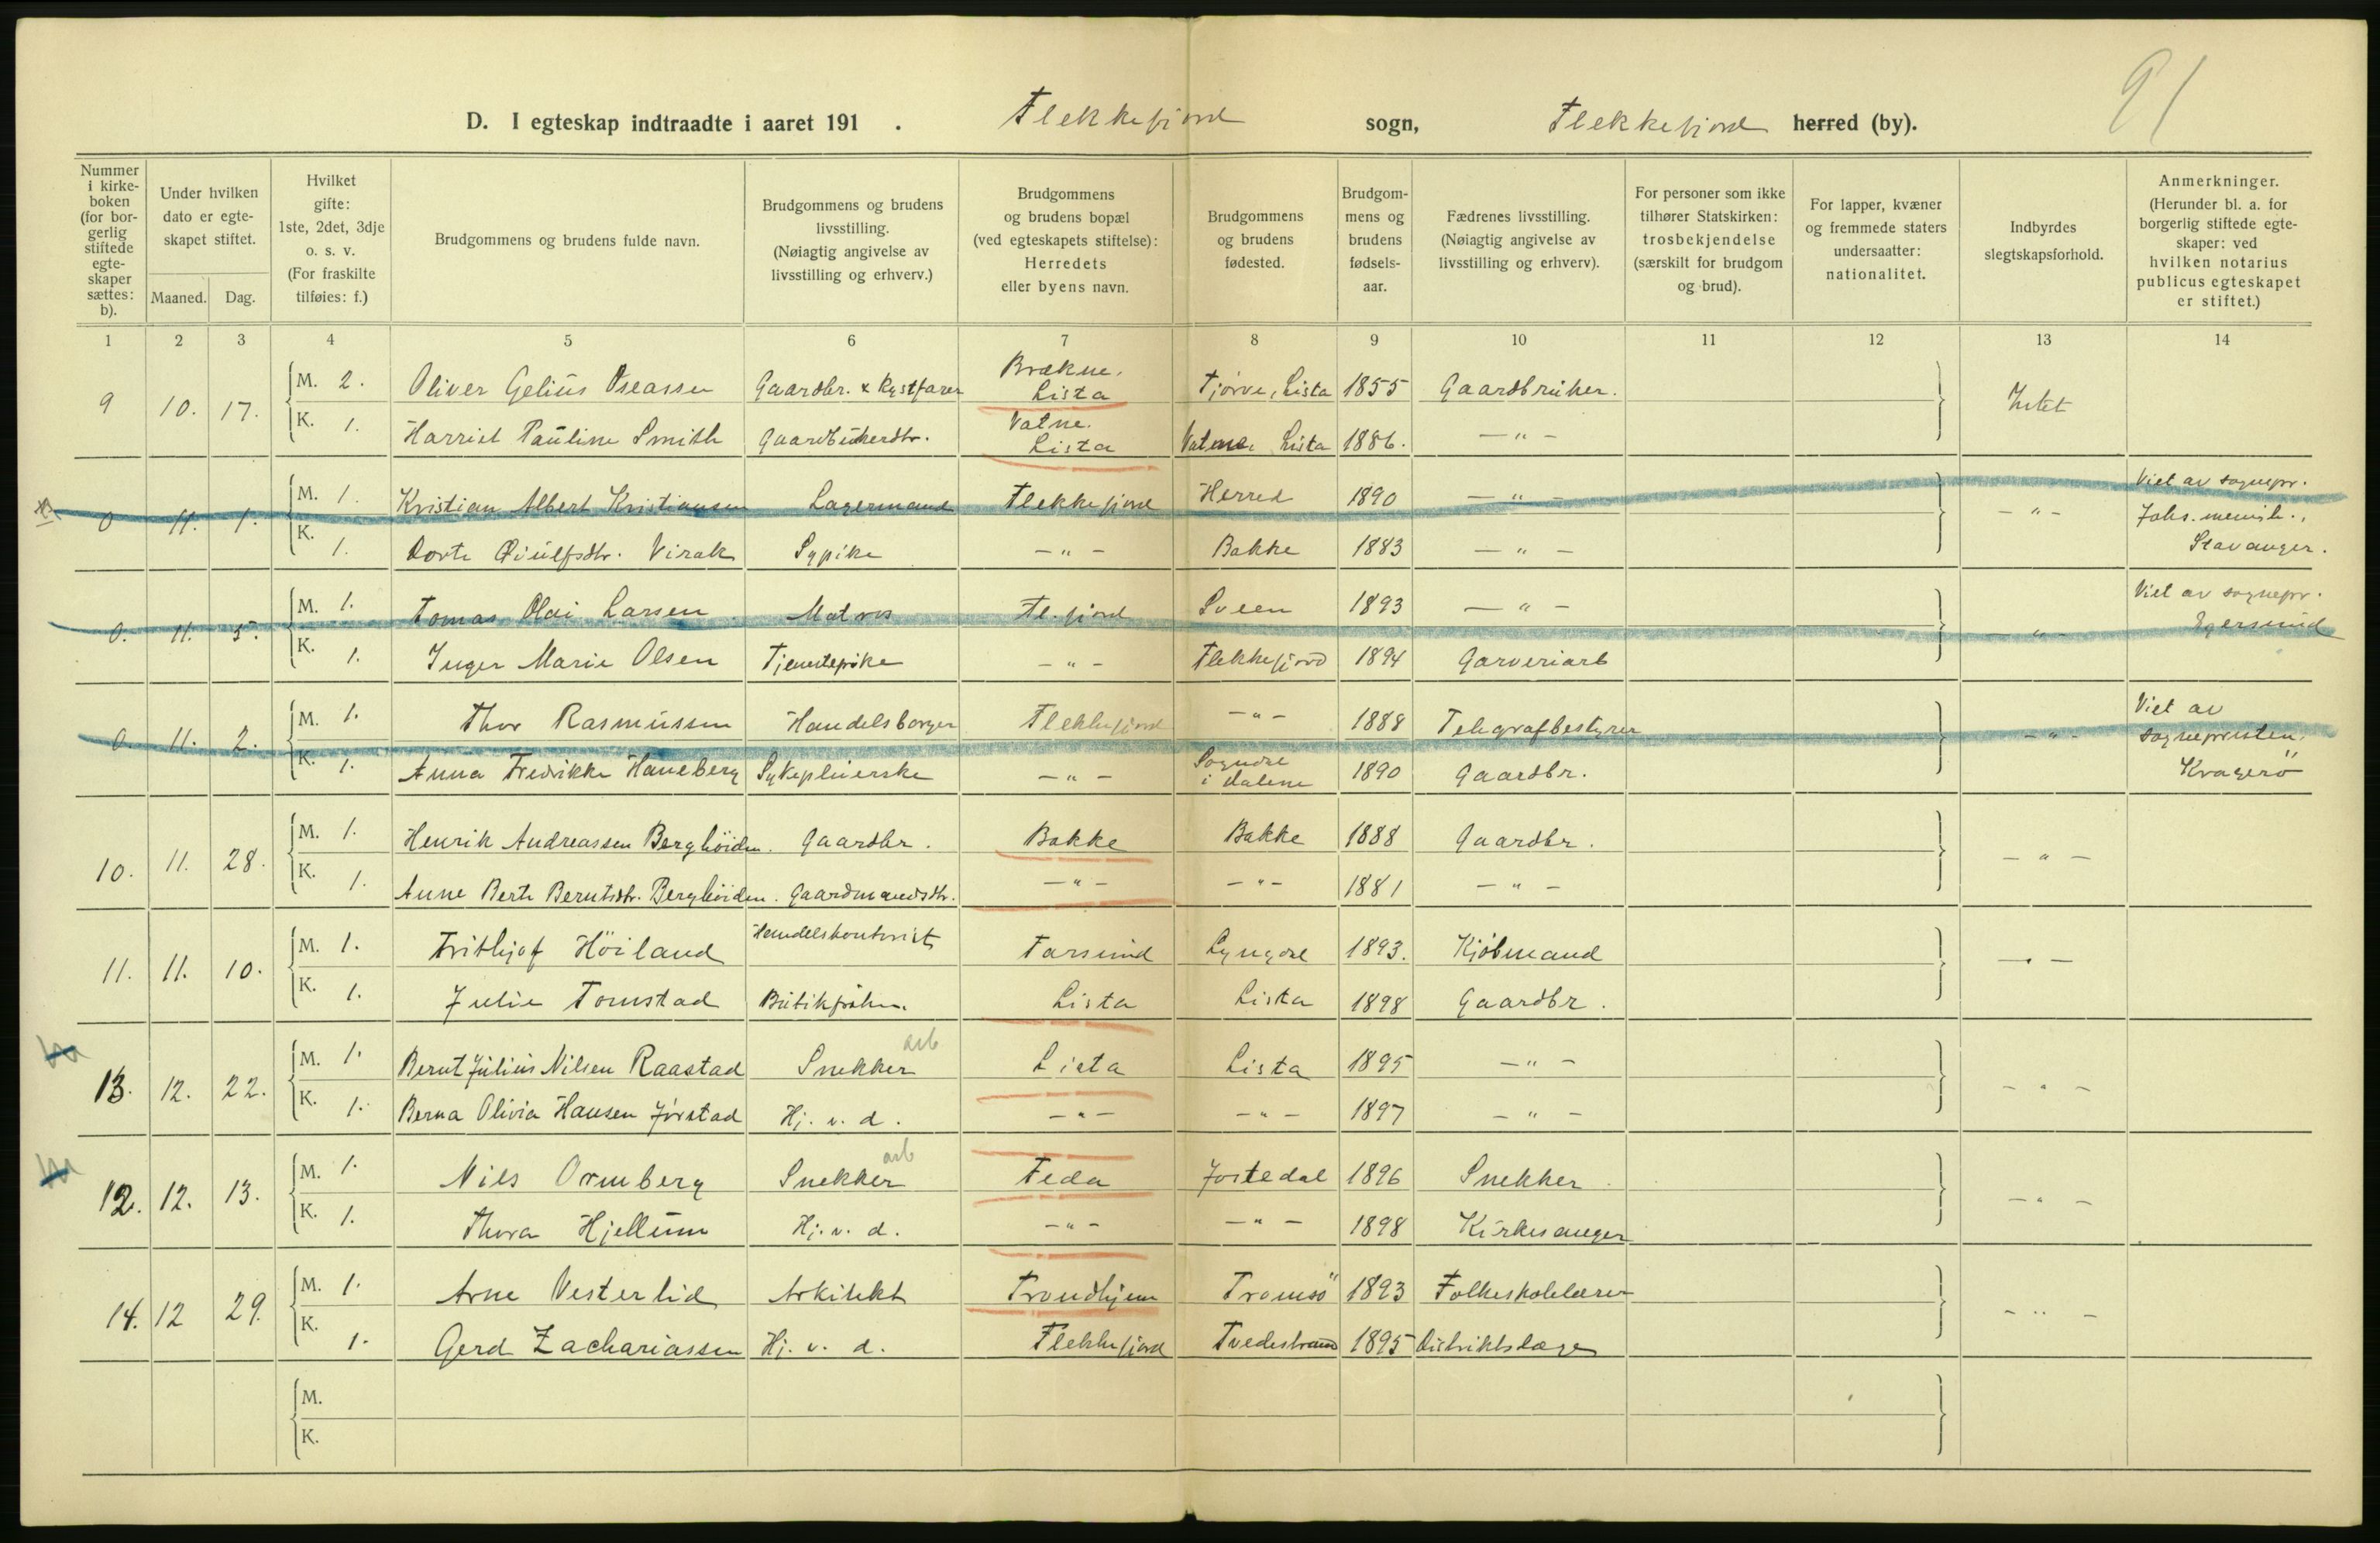 91
D. I egteskap indtraadte i aaret 191 . Flekkefjord sogn, Flekkefjord herred (by).
Nummer i kirkeboken (for borgerlig stiftede egteskaper sættes: b). Under hvilken dato er egteskapet stiftet. Maaned. Dag. Hvilket gifte: 1ste, 2det, 3dje o. s. v. (For fraskilte tilføies: f.) Brudgommens og brudens fulde navn. Brudgommens og brudens livsstilling. (Nøiagtig angivelse av livsstilling og erhverv.) Brudgommens og brudens bopæl (ved egteskapets stiftelse): Herredets eller byens navn. Brudgommens og brudens fødested. Brudgommens og brudens fødselsaar. Fædrenes livsstilling. (Nøiagtig angivelse av livsstilling og erhverv). For personer som ikke tilhører Statskirken: trosbekjendelse (særskilt for brudgom og brud). For lapper, kvæner og fremmede staters undersaatter: nationalitet. Indbyrdes slegtskapsforhold. Anmerkninger. (Herunder bl. a. for borgerlig stiftede egteskaper: ved hvilken notarius publicus egteskapet er stiftet.)
1 2 3 4 5 6 7 8 9 10 11 12 13 14
9 10. 17. M. 2. Oliver Gelius Oseassen Gaardbr. & Kystfarer Brækne. Lista Tjørve, Lista 1855 Gaardbruker. Intet
K. 1. Harriet Pauline Smith Gaardbrukerdtr. Vatne. Lista Vatne, Lista 1886. — " —
0 11. 1. M. 1. Kristian Albert Kristiansen Lagermand Flekkefjord Herred 1890 — " — — " — Viet av sognepr.
Stavanger.
K. 1. Dorte Virak Sypike — " — Bakke 1883 — " —
0. 11. 5. M. 1. Tomas Olai Larsen Matros Fl.fjord Sveen 1893 — " — — " — Viet av sognepr. Egersund
K. 1. Inger Marie Olsen Tjenestepike — " — Flekkefjord 1894 Garveriarb
0. 11. 2. M. 1. Thor Rasmussen Handelsborger Flekkefjord — " — 1888 Telegrafbestyrer — " — Viet av sognepresten. Kragerö
K. 1. Anna Fredrikke Haneberg Sykepleierske — " — Sogndal i Dalene 1890 Gaardbr.
10. 11. 28. M. 1. Henrik Andreassen Berghöiden. Gaardbr. Bakke Bakke 1888 Gaardbr. — " —
K. 1. Anne Berte Berntsdtr. Berghöiden. Gaardmandsdtr. — " — — " — 1881 — " —
11. 11. 10. M. 1. Frithjof Höiland Handelskontorist Farsund Lyngdal 1893. Kjöbmand — " —
K. 1. Julie Tomstad Butikfrøken. Lista Lista 1898 Gaardbr.
13. 12. 22. M. 1. Bernt Julius Nilsen Raastad Snekker arb Lista Lista 1895 — " — — " —
K. 1. Berna Olivia Hansen Jørstad Hj. v. d. — " — — " — 1897 — " —
12. 12. 13. M. 1. Nils Ormberg Snekker arb Feda Jostedal 1896 Snekker. — " —
K. 1. Thora Hjellum Hj. v. d. — " — — " — 1898 Kirkesanger
14. 12 29. M. 1. Arne Vesterlid Arkitekt Trondhjem Tromsö 1893 Folkeskolelærer — " —
K. 1. Gerd Zachariassen Hj. v. d. Flekkefjord Tvedestrand 1895 Distriktslæge
M.
K.